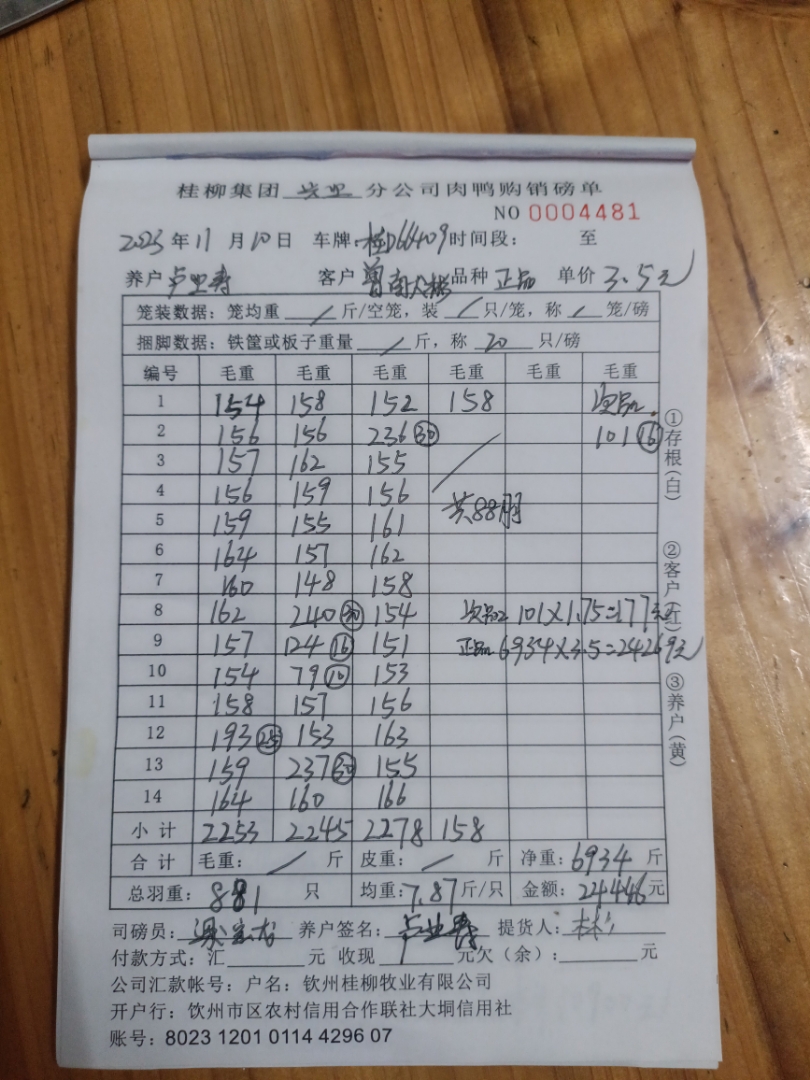 桂柳集团 分公司肉鸭购销磅单
NO 0004481
2025年11月10日 车牌:桂D66409 时间段: 至
养户 卢业寿 客户 曾南大杨 品种 正品 单价 3.5元
笼装数据: 笼均重 / 斤/空笼, 装 / 只/笼, 称 / 笼/磅
捆脚数据: 铁筐或板子重量 / 斤, 称 20 只/磅
编号 毛重 毛重 毛重 毛重 毛重 毛重
1 154 158 152 158 次品
2 156 156 236 30 101 16
3 157 162 155
4 156 159 156
5 159 155 161 共88用
6 164 157 162
7 160 148 158
8 162 240 30 154 次品 101×1.75=177元
9 157 124 16 151 正品 6934×3.5=24269元
10 154 79 10 153
11 158 157 156
12 193 25 153 163
13 159 237 30 155
14 164 160 166
小计 2253 2245 2278 158
合计 毛重: / 斤 皮重: / 斤 净重: 6934 斤
总羽重: 881 只 均重: 7.87 斤/只 金额: 24446 元
司磅员: 养户签名: 卢业寿 提货人:
付款方式: 汇 元 收现 元欠(余): 元
公司汇款帐号: 户名: 钦州桂柳牧业有限公司
开户行: 饮州市区农村信用合作联社大垌信用社
账号: 8023 1201 0114 4296 07
①存根(白)
②客户(红)
③养户(黄)